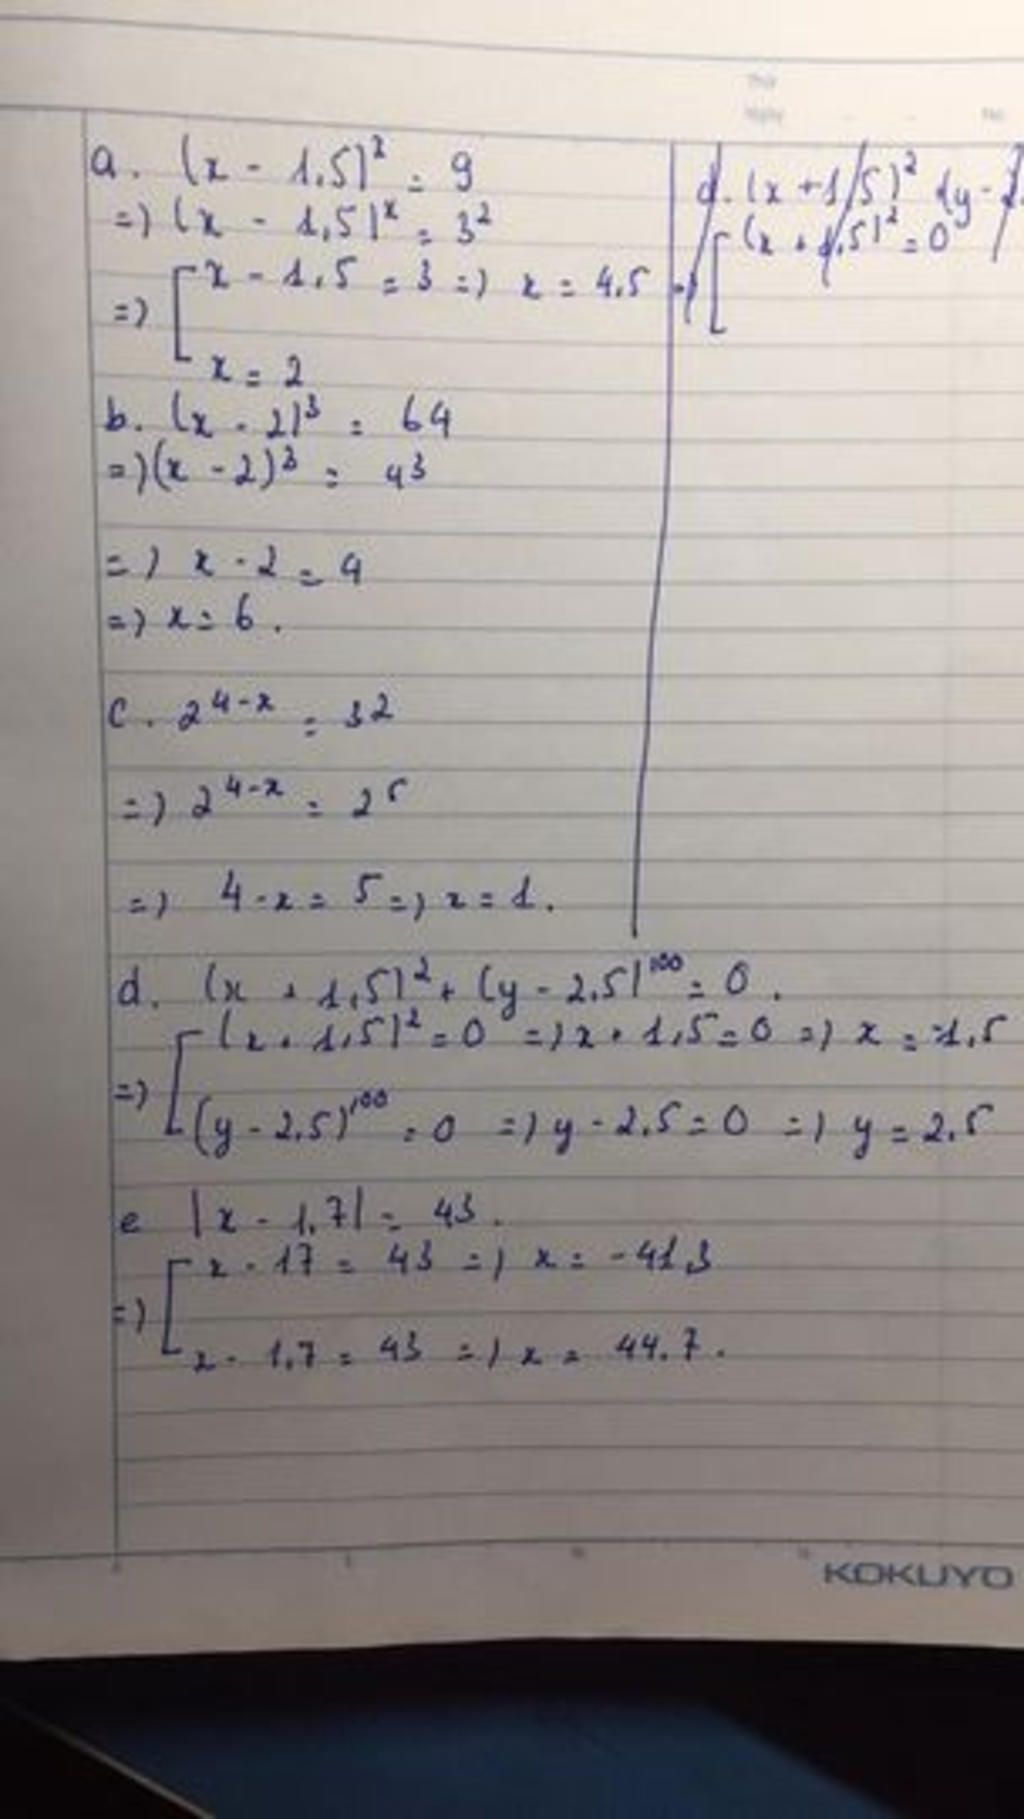 a. (x - 1,5)² = 9
=) (x - 1,5)ˣ = 3²
=) [ x - 1,5 = 3 =) x = 4.5
x = 2
b. (x - 2)³ = 64
=) (x - 2)³ = 4³
=) x - 2 = 4
=) x = 6.
c. 2⁴⁻ˣ = 32
=) 2⁴⁻ˣ = 2⁵
=) 4 - x = 5 =) x = 1.
d. (x + 1,5)² (y - 2
=) [ (x + 1,5)² = 0
d. (x + 1,5)² + (y - 2.5)¹⁰⁰ = 0.
=) [ (x + 1,5)² = 0 =) x + 1,5 = 0 =) x = -1,5
(y - 2.5)¹⁰⁰ = 0 =) y - 2.5 = 0 =) y = 2.5
e |x - 1.7| = 43.
=) [ x - 17 = 43 =) x = -41,3
x - 1.7 = 43 =) x = 44.7.
KOKUYO